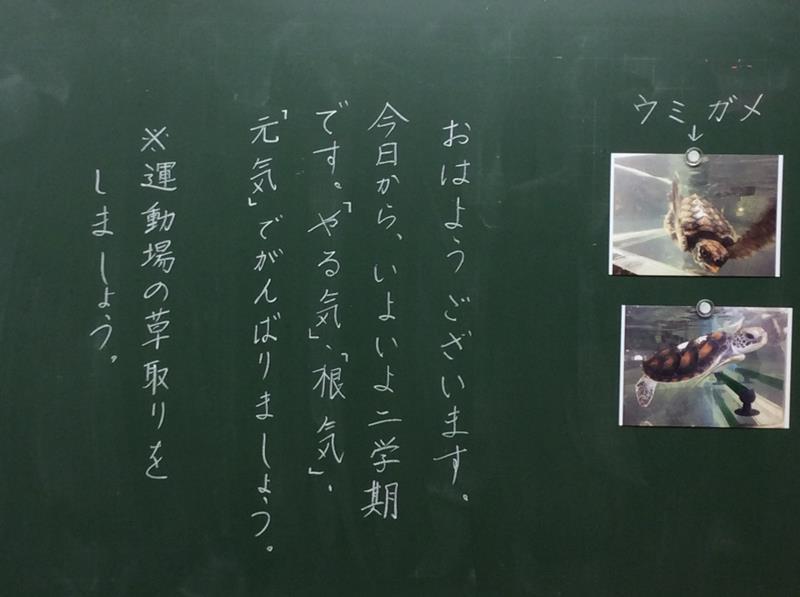 ウミガメ
↓
おはようございます。
今日から、いよいよ二学期
です。「やる気」、「根気」、
「元気」でがんばりましょう。
※運動場の草取りを
しましょう。